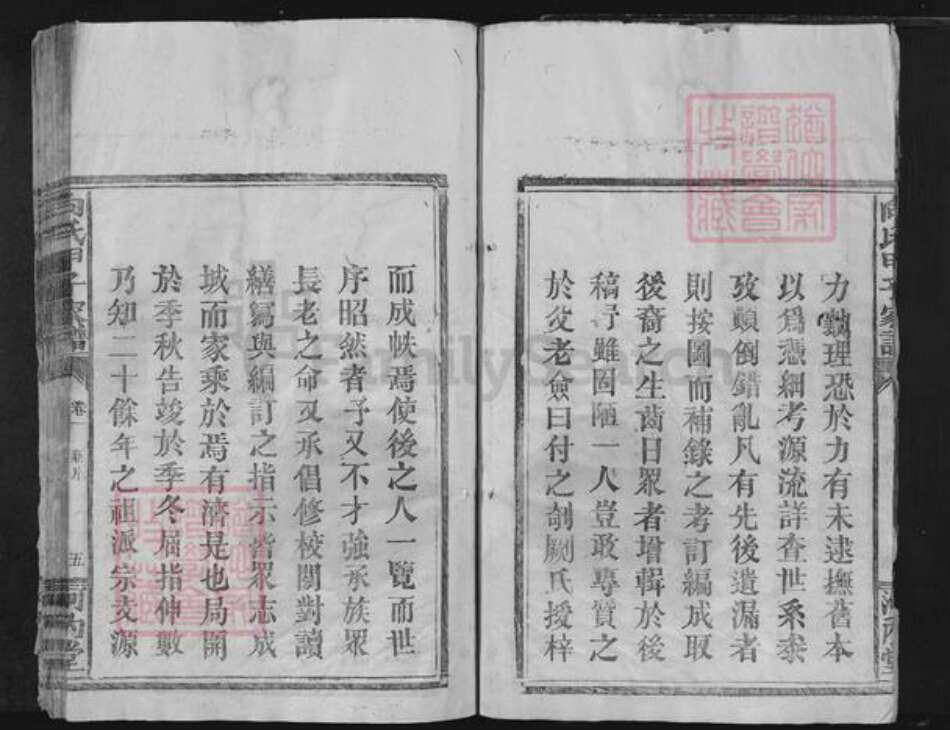 力勷理恐於力有未逮撫舊本
以爲憑細考源流詳查世系泰
攷顛倒錯亂凡有先後遺漏者
則按圖而補錄之考訂編成取
後裔之生齒日眾者增輯於後
稿予雖固陋一人豈敢專質之
於父老僉曰付之剞劂氏授梓
而成帙焉使後之人一覽而世
序昭然者予又不才強承族眾
長老之命又承倡修校閱對讀
繕寫與編訂之指示皆眾志成
城而家乘於焉有濟是也局開
於季秋告竣於季冬屈指伸數
乃知二十餘年之祖派宗支源
向氏甲子家譜 卷一 五
FamilySearch